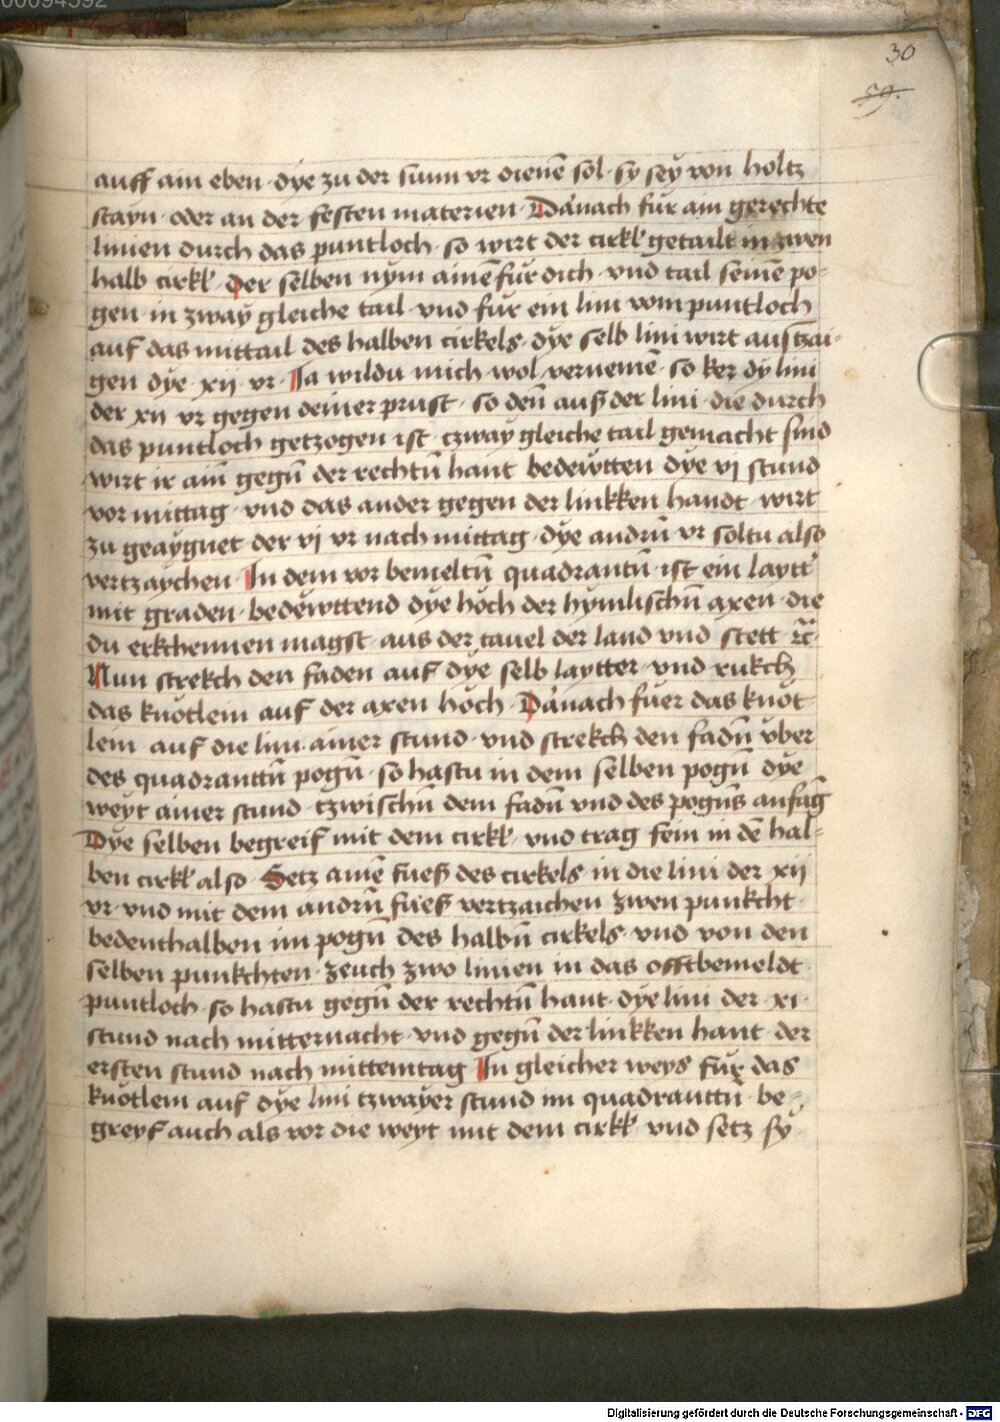 00094592
30
59.
auff ain eben · dye zu der sunn vr dienē sol · sy seÿ von holtz
stayn · oder an der festen materien · Dānach fůr ain gerechte
linien durch das puntloch · so wirt der cirkl getailt in zwen
halb cirkl · Der selben nym ainē fůr dich · vnd tail seinē po-
gen · in zwaÿ gleiche tail · vnd fůr ein lini vom puntloch
auf das mittail des halben cirkels · dye selb lini wirt auszai-
gen dye · xij · vr · Ja wildu mich wol vernemē · so ker dy lini
der xij vr gegen deiner prust · so den̄ auß der lini · die durch
das puntloch getzogen ist · tzwaÿ gleiche tail gemacht sind
wirt ir ain̄ gegn̄ der rechtn̄ hant bedewtten dye vj stund
vor mittag · vnd das ander gegen der linkken handt · wirt
zu geaygnet der vj vr nach mittag · dye andrn̄ vr soltu also
vertzaychen · In dem vor bemeltn̄ quadrantn̄ · ist ein laytt̄
mit graden · bedewttend dye höch der hymlischn̄ axen · die
du erkhennen magst · aus der tauel der land vnd stett · rc̄ ·
Nun strekch den faden auf dye selb laytter · vnd rukch
das knötlein auf der axen höch · Dānach fuer das knöt
lein auf die lini ainer stund · vnd strekch den fadn̄ vber
des quadranttn̄ pogn̄ · so hastu in dem selben pogn̄ dye
weyt ainer stund · tzwischn̄ dem fadn̄ vnd des pogn̄s anfāg
Dye selben begreif mit dem cirkl · vnd trag sein in dē hal-
ben cirkl also · Setz ainē fueß des cirkels in die lini der xij
vr · vnd mit dem andrn̄ fueß vertzaichen zwen punkcht ·
bedenthalben im pogn̄ des halbn̄ cirkels · vnd von den
selben punkchten · zeuch zwo linien in das offtbemeldt
puntloch · so hastu gegn̄ der rechtn̄ hant · dye lini der · xi ·
stund nach mitternacht · vnd gegn̄ der linkken hant · der
ersten stund nach mittemtag · In gleicher weys fůr das
knötlein auf dye lini tzwayer stund im quadranttn̄ · be-
greyf auch als vor die weyt mit dem cirkl · vnd setz sÿ
Digitalisierung gefördert durch die Deutsche Forschungsgemeinschaft - DFG